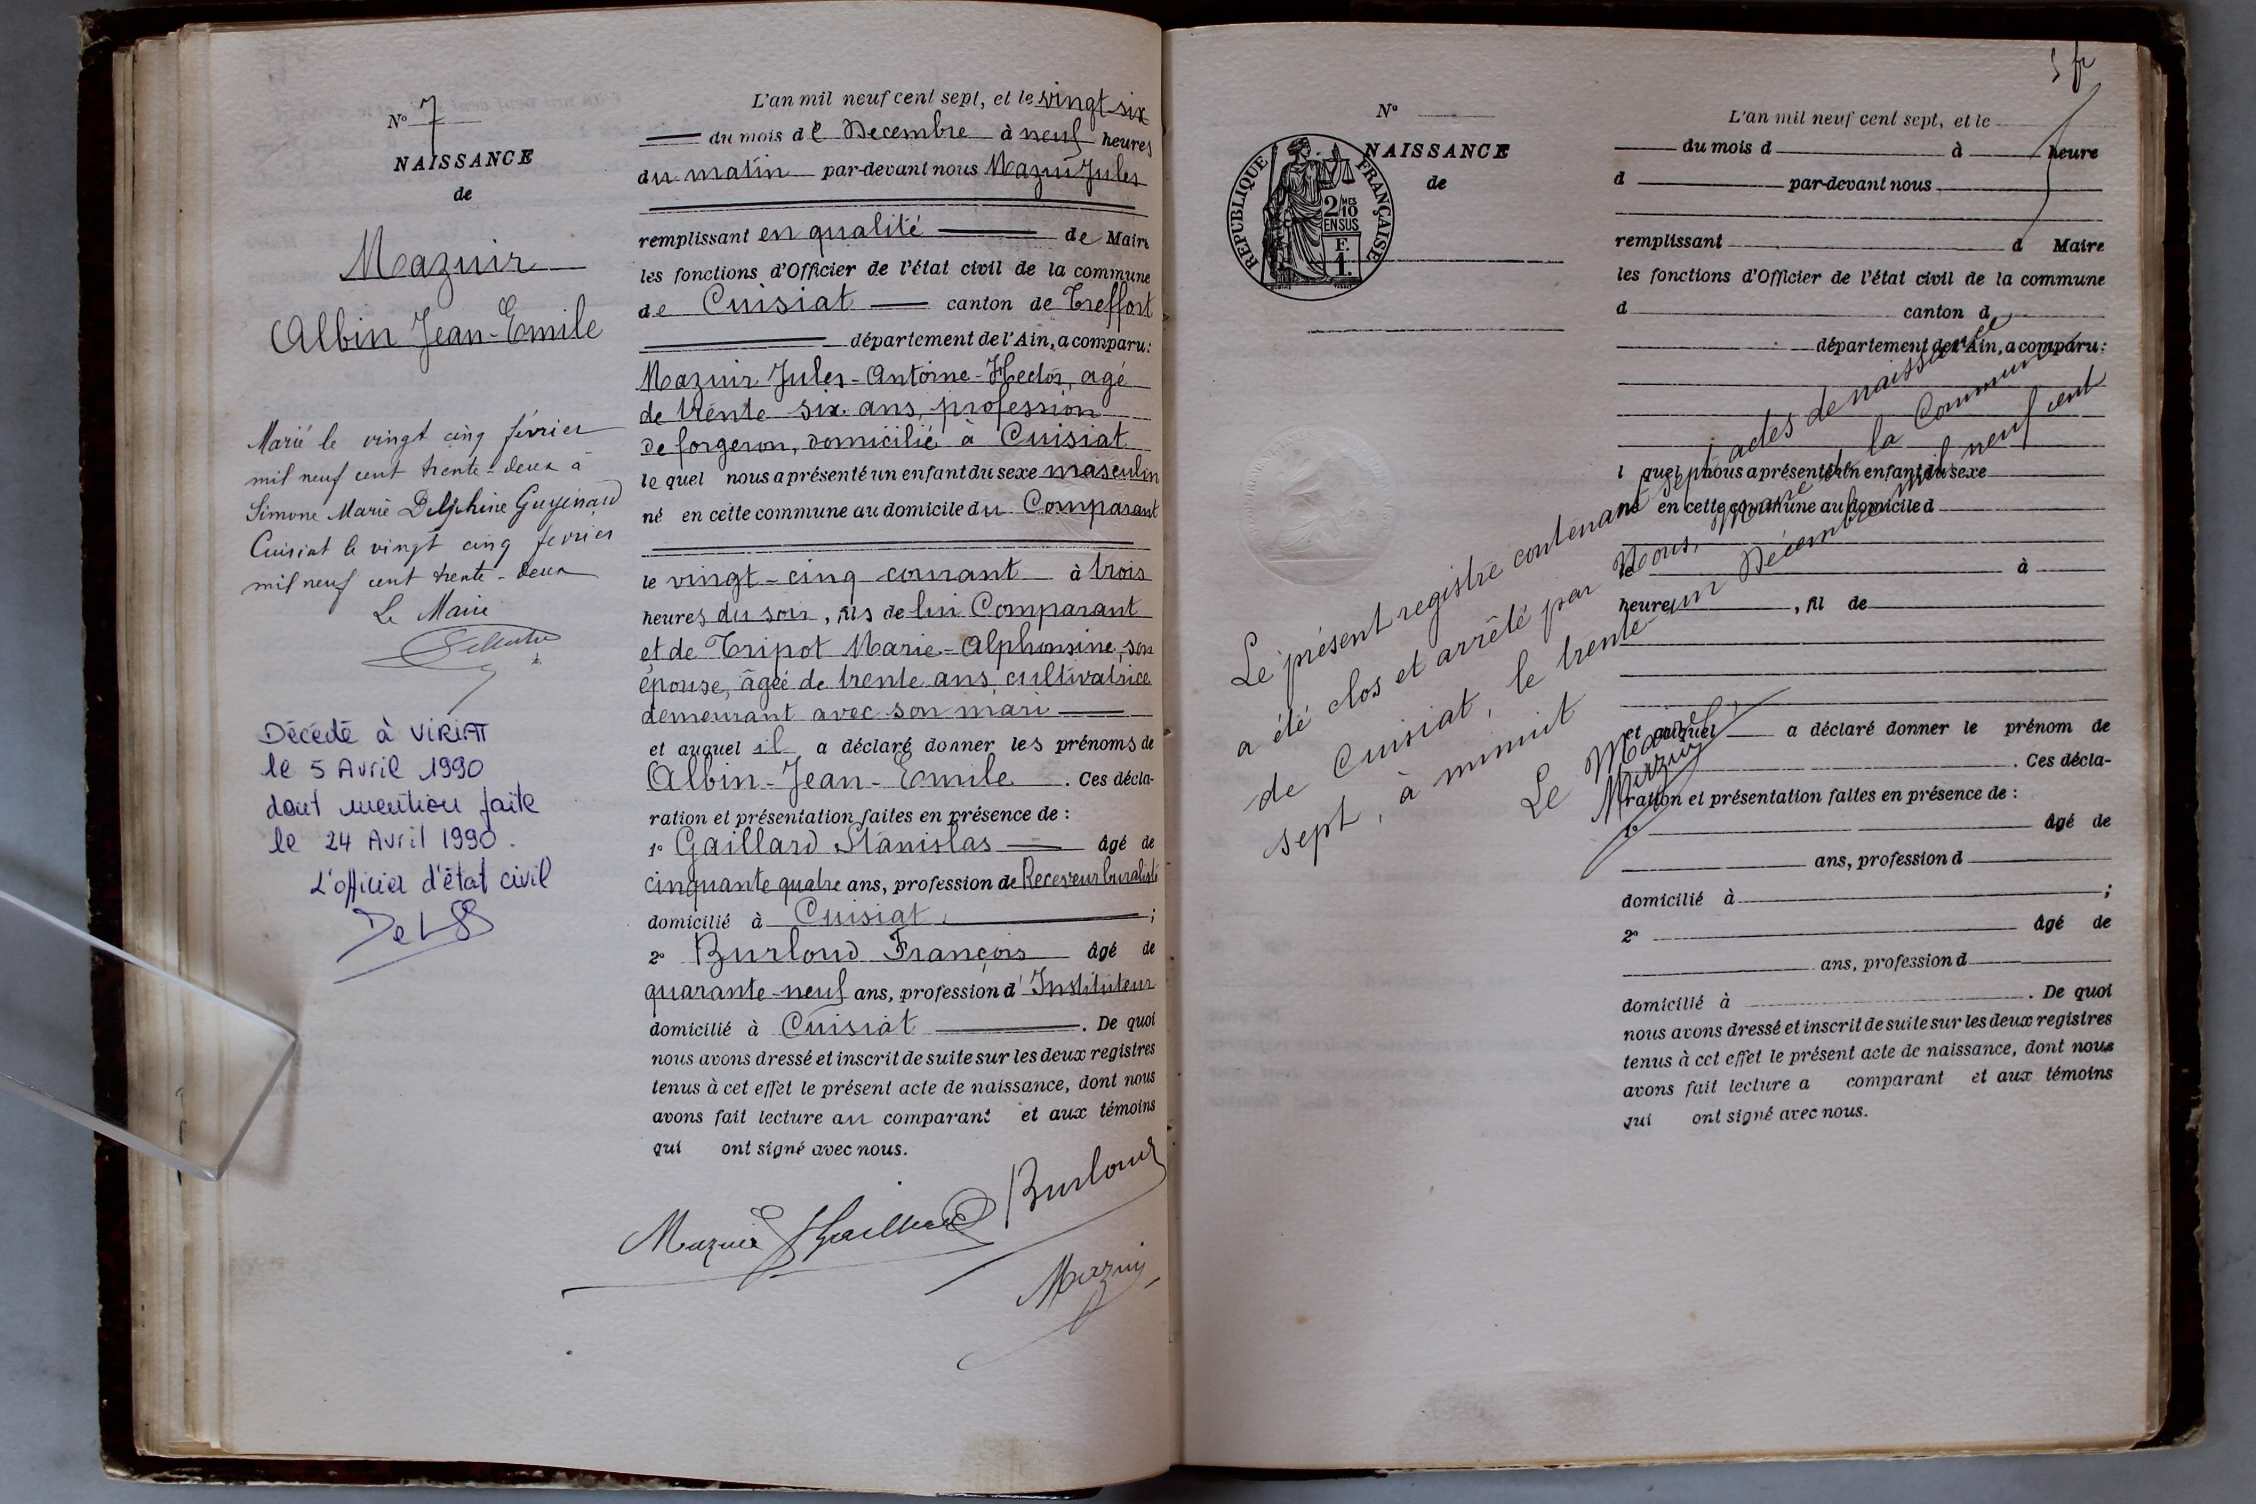 N° 7
NAISSANCE
de
Mazuir
Albin Jean-Emile
Marié le vingt cinq février
mil neuf cent trente-deux à
Simone Marie Delphine Guyénard
Cuisiat le vingt cinq février
mil neuf cent trente-deux
Le Maire
Décédé à VIRIAT
le 5 Avril 1990
dont mention faite
le 24 Avril 1990.
L'officier d'état civil
L'an mil neuf cent sept, et le vingt-six
du mois de Décembre à neuf heures
du matin par-devant nous Mazui Jules
remplissant en qualité de Maire
les fonctions d'Officier de l'état civil de la commune
de Cuisiat canton de Treffort
département de l'Ain, a comparu:
Mazuir Jules-Antoine-Hector, agé
de trente six ans, profession
de forgeron, domicilié à Cuisiat
lequel nous a présenté un enfant du sexe masculin
né en cette commune au domicile du Comparant
le vingt-cinq courant à trois
heures du soir, fils de lui Comparant
et de Tripot Marie-Alphonsine, son
épouse, âgée de trente ans, cultivatrice
demeurant avec son mari
et auquel il a déclaré donner les prénoms de
Albin-Jean-Emile. Ces décla-
ration et présentation faites en présence de :
1° Gaillard Stanislas âgé de
cinquante quatre ans, profession de Receveur buraliste
domicilié à Cuisiat ;
2° Burloud François âgé de
quarante-neuf ans, profession d'Instituteur
domicilié à Cuisiat. De quoi
nous avons dressé et inscrit de suite sur les deux registres
tenus à cet effet le présent acte de naissance, dont nous
avons fait lecture au comparant et aux témoins
qui ont signé avec nous.
Mazuir Gaillard Burloud
Mazui
5 fr
N°
NAISSANCE
de
RÉPUBLIQUE FRANÇAISE
2/10 MES
EN SUS
F.
1.
L'an mil neuf cent sept, et le
du mois d à heure
d par-devant nous
remplissant d Maire
les fonctions d'Officier de l'état civil de la commune
d canton d
département de l'Ain, a comparu:
l quel nous a présenté un enfant du sexe
né en cette commune au domicile d
le à
heure , fil de
et auquel a déclaré donner le prénom de
. Ces décla-
ration et présentation faites en présence de :
1° âgé de
ans, profession d
domicilié à ;
2° âgé de
ans, profession d
domicilié à . De quoi
nous avons dressé et inscrit de suite sur les deux registres
tenus à cet effet le présent acte de naissance, dont nous
avons fait lecture a comparant et aux témoins
qui ont signé avec nous.
Le présent registre contenant sept actes de naissance
a été clos et arrêté par Nous, Maire de la Commune
de Cuisiat, le trente-un Décembre mil neuf cent
sept, à minuit
Le Maire,
Mazui